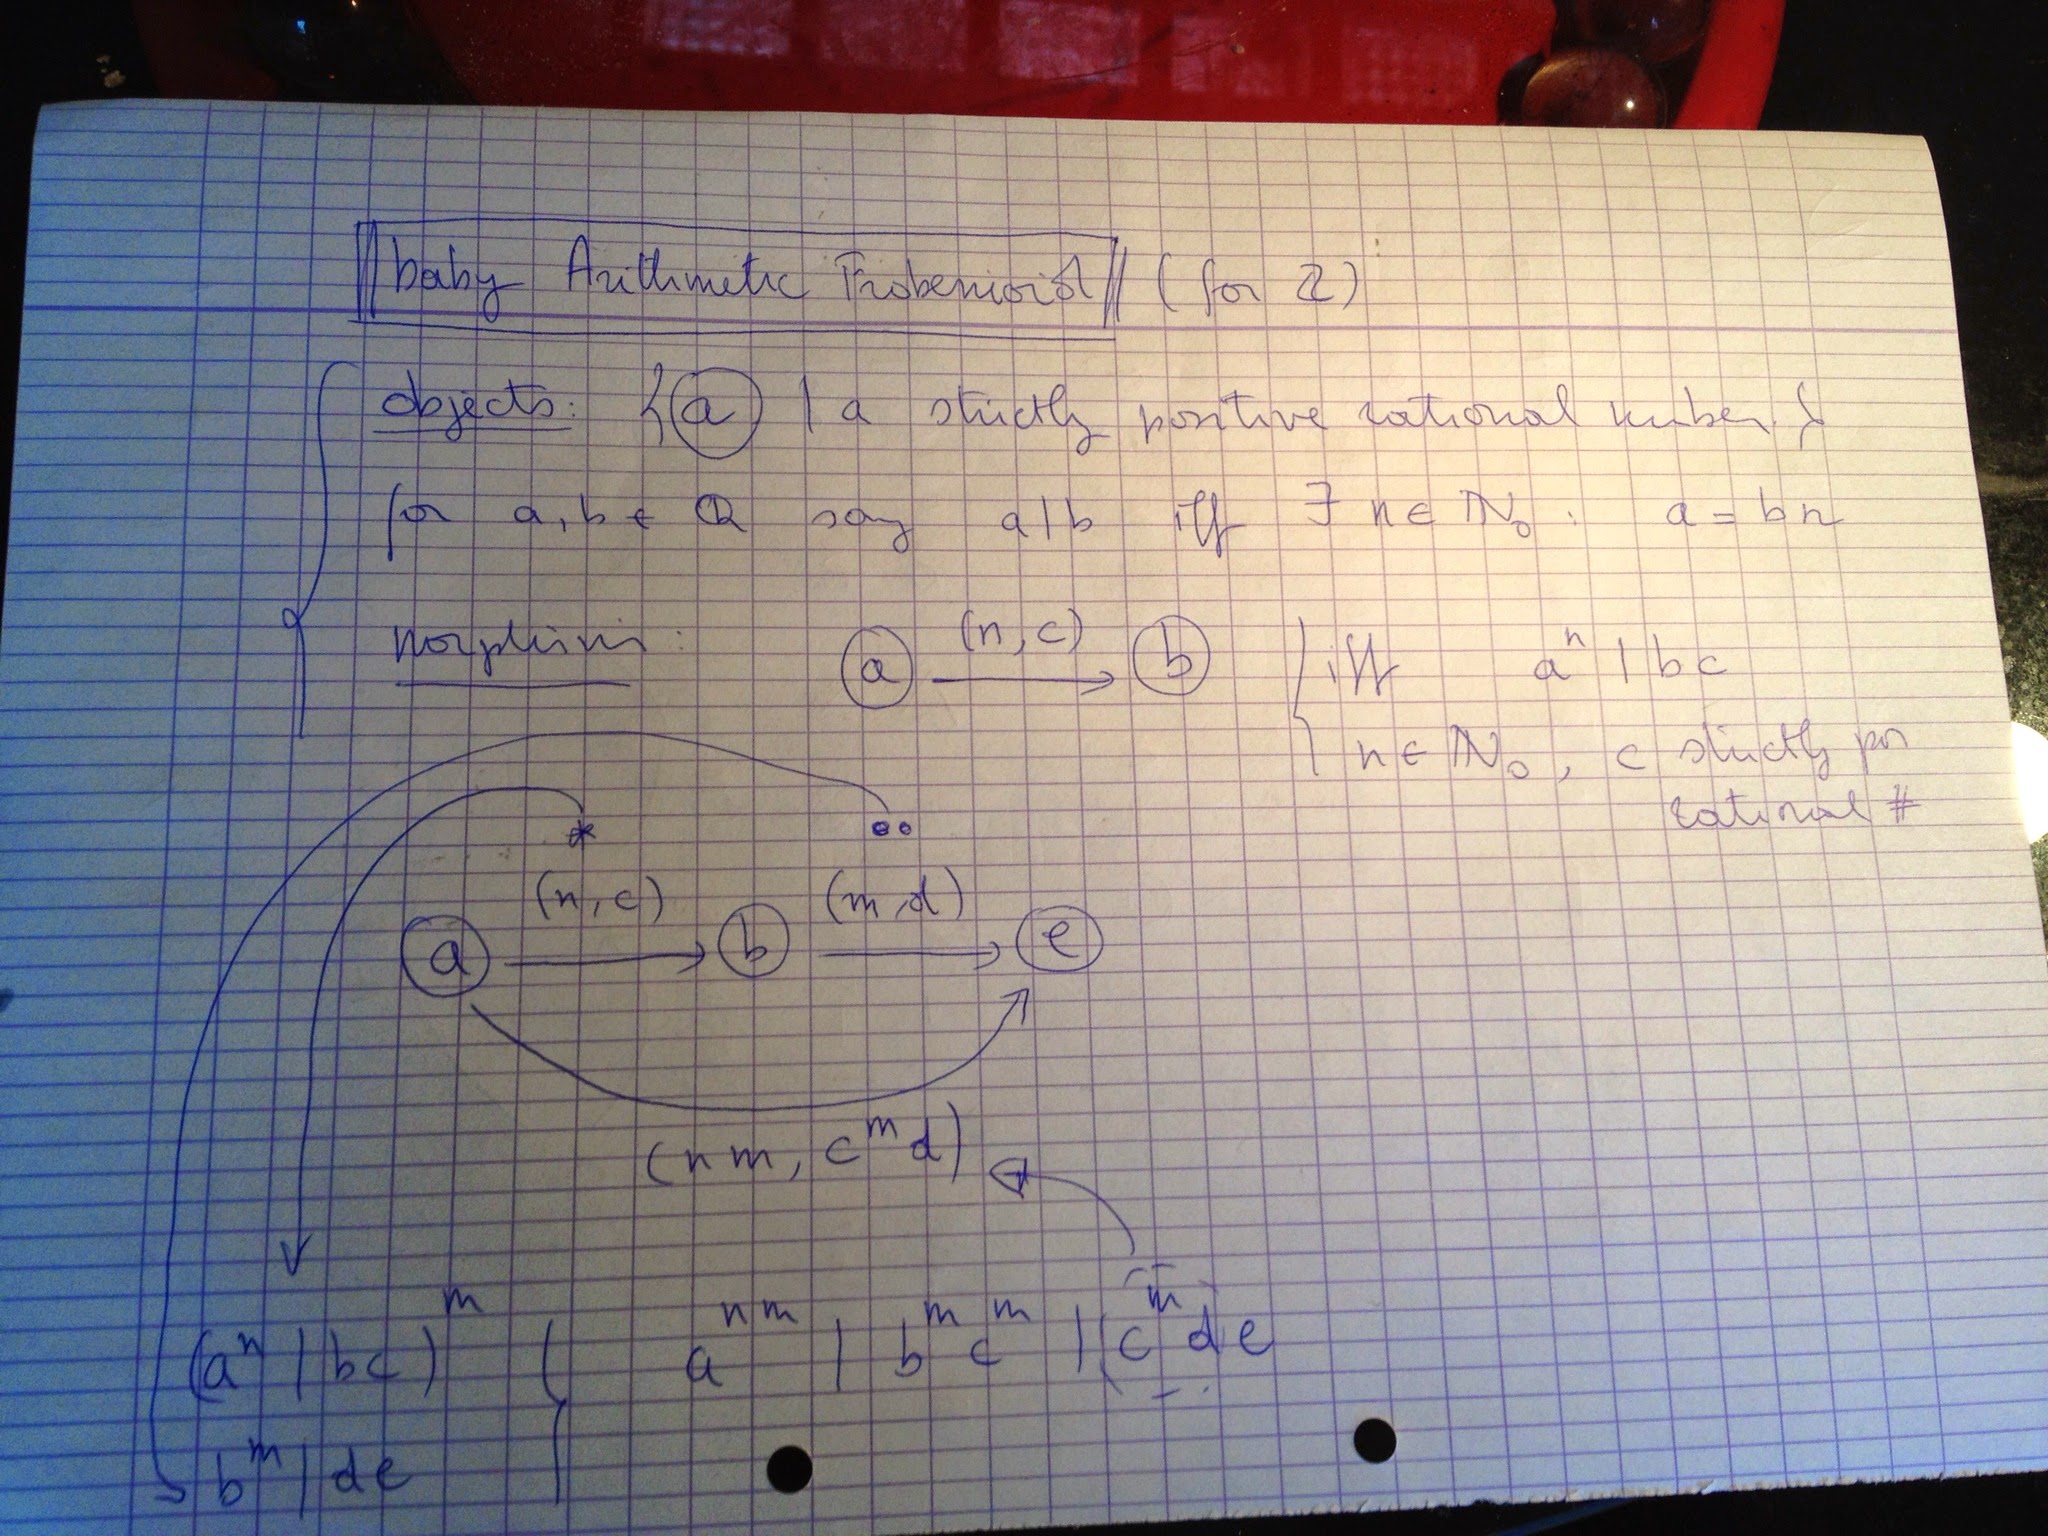 baby Arithmetic Frobenioid (for ℤ)
objects: { a | a strictly positive rational number }
for a, b ∈ ℚ say a | b iff ∃ n ∈ ℕ₀ : a = bn
morphisms: a (n, c) → b { iff aⁿ | bc
n ∈ ℕ₀, c strictly pos
rational #
* ••
(n, c) (m, d)
a → b → e
(nm, cᵐd)
(aⁿ | bc)ᵐ aⁿᵐ | bᵐcᵐ | cᵐde
bᵐ | de